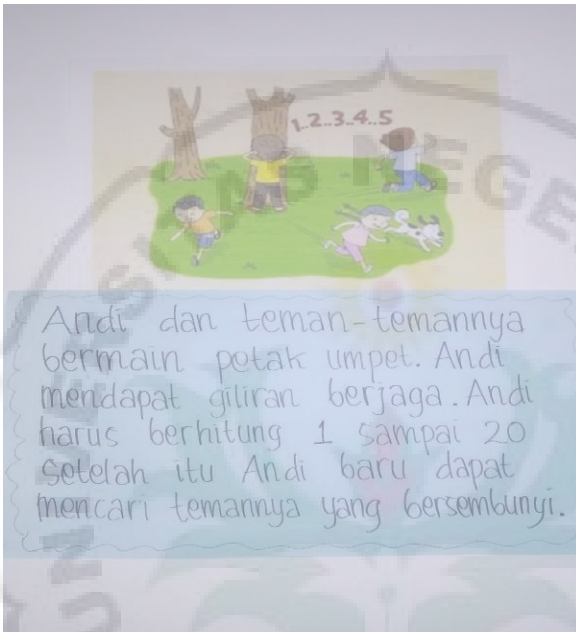 1..2..3..4..5
Andi dan teman-temannya
bermain petak umpet. Andi
mendapat giliran berjaga. Andi
harus berhitung 1 sampai 20
setelah itu Andi baru dapat
mencari temannya yang bersembunyi.